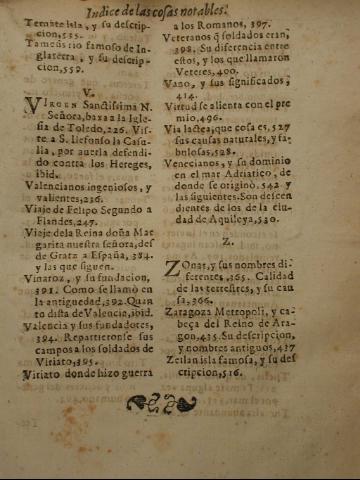 Indice de las cosas notables.
Ternate isla, y su descrip-
cion,535.
Tamesis rio famoso de In-
glaterra, y su descrip-
cion,559.
V.
VIRGEN Sanctissima N.
Señora, baxa a la Igle
sia de Toledo,226. Vis-
te a S. Ilefonso la Casu-
lla, por auerla defendi-
do contra los Hereges,
ibid.
Valencianos ingeniosos, y
valientes,236.
Viaje de Felipo Segundo a
Flandes,247.
Viaje de la Reina doña Mar
garita nuestra señora, des
de Gratz a España, 384.
y las que siguen.
Vinaroz, y su fundacion,
391. Como se llamò en
la antiguedad,392. Quan
to dista de Valencia, ibid.
Valencia y sus fundadores,
394. Repartieronse sus
campos a los soldados de
Viriato,395.
Viriato donde hizo guerra
a los Romanos, 397.
Veteranos q̃ soldados eran,
398. Su diferencia entre
estos, y los que llamaron
Veteres,400.
Vano, y sus significados,
414.
Virtud se alienta con el pre
mio,496.
Via lactea, que cosa es,527
sus causas naturales, y fa-
bulosas,528.
Venecianos, y su dominio
en el mar Adriatico, de
donde se originò,542 y
las siguientes. Son descen
dientes de los de la ciu-
dad de Aquileya,530.
Z.
ZOnas, y sus nombres di-
ferentes,365. Calidad
de las terrestres, y su cau
sa,366.
Zaragoza Metropoli, y ca-
beça del Reino de Ara-
gon,435. Su descripcion,
y nombres antiguos,437
Zeilan isla famosa, y su des
cripcion,516.